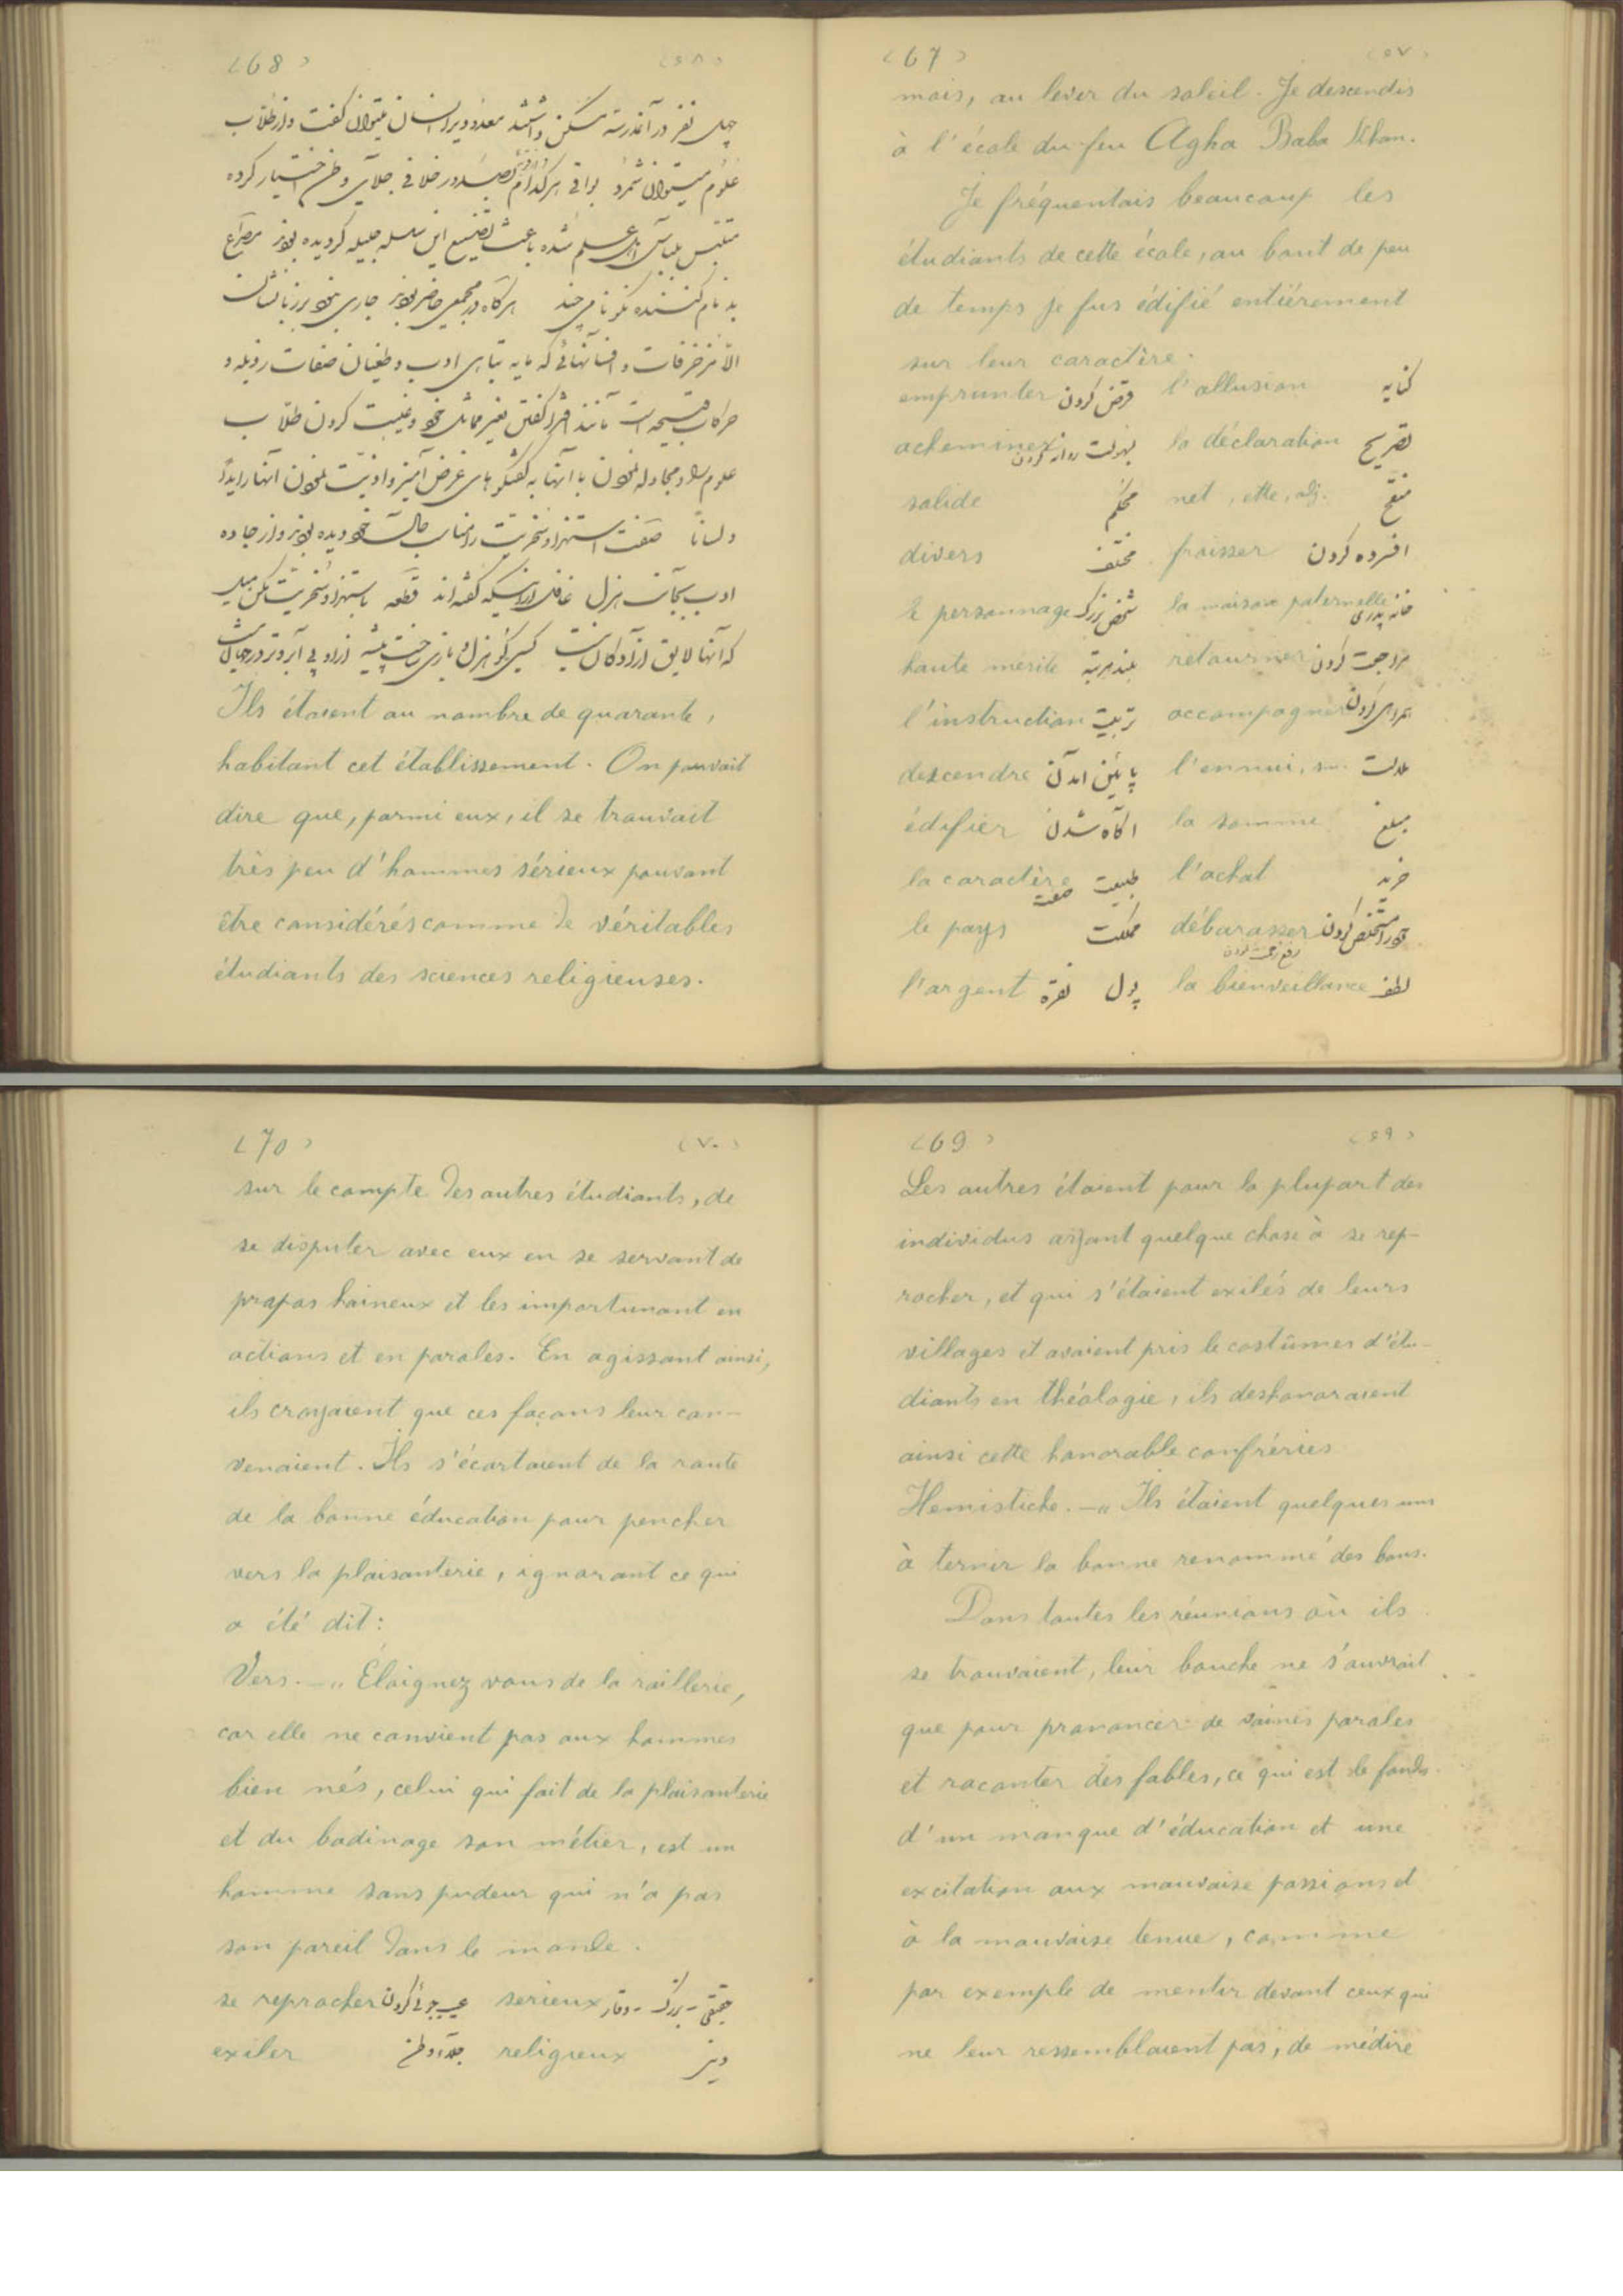 (67) (٦٧)
mais, au lever du soleil. Je descendis
à l'école du feu Agha Baba Khan.
Je fréquentais beaucoup les
étudiants de cette école, au bout de peu
de temps je fus édifié entiérement
sur leur caractère.
emprunter قرض کردن l'allusion کنایه
acheminer بسهولت روانه کردن la déclaration تصریح
solide محکم net, ette, adj. منقح
divers مختلف froisser افسرده کردن
le personnage شخص بزرگ la maison paternelle خانه پدری
haute mérite بلند مرتبه retourner مراجعت کردن
l'instruction تربیت accompagner همراهی کردن
descendre پائین آمدن l'ennui, sm. ملالت
édifier آگاه شدن la somme مبلغ
la caractère طبیعت صفت l'achat خرید
le pays مملکت débarasser کردن
رفع زحمت کردن
l'argent نقره پول la bienveillance لطف
(68) (٦٨)
چهل نفر در آنمدرسه مسکن داشتند معدودیرا انسان میتوان گفت و از طلاب
علوم میتوان شمرد بواقی هر کدام بصدور خلافی جلای وطن اختیار کرده
متلبس بلباس اهل علم شده باعث تضییع این سلسله جلیله گردیده بودند مصراع
بدنام کننده نکونامی چند هرگاه در مجمعی حاضر بودند جاری نبود بر زبانشان
الا مزخرفات و افسانهائی که مایه تباهی ادب و طغیان صفات رذیله و
حرکات قبیحه است مانند گفتن بغیر مماثل خود و غیبت کردن طلاب
علوم و مجادله نمودن با آنها به گفتگوهای غرض آمیز و اذیت نمودن آنها را یداً
و لساناً صفت استهزا و سخریت را مناسب حال خود دیده بودند و از جاده
ادب بجانب هزل غافل از اینکه گفته‌اند قطعه باستهزا و سخریت مکن میل
که آنها لایق آزادگان نیست کسی کو هزل و بازی ساخت پیشه ازو بی آبروتر در جهان نیست
Ils étaient au nombre de quarante,
habitant cet établissement. On pouvait
dire que, parmi eux, il se trouvait
très peu d'hommes sérieux pouvant
être considérés comme de véritables
étudiants des sciences religieuses.
(69) (٦٩)
Les autres étaient pour la plupart des
individus ayant quelque chose à se rep-
rocher, et qui s'étaient exilés de leurs
villages et avaient pris le costûmes d'étu-
diants en théologie, ils deshonoraient
ainsi cette honorable confréries
Hemistiche. — „ Ils étaient quelques uns
à ternir la bonne renommé des bons.
Dans toutes les réunions où ils
se trouvaient, leur bouche ne s'ouvrait
que pour prononcer de vaines paroles
et raconter des fables, ce qui est le fonds
d'un manque d'éducation et une
excitation aux mauvaise passions et
à la mauvaise tenue, comme
par exemple de mentir devant ceux qui
ne leur ressemblaient pas, de médire
(70) (٧٠)
sur le compte des autres étudiants, de
se disputer avec eux en se servant de
propos haineux et les importunant en
actions et en paroles. En agissant ainsi,
ils croyaient que ces façons leur con-
venaient. Ils s'écartaient de la route
de la bonne éducation pour pencher
vers la plaisanterie, ignorant ce qui
a été dit:
Vers. — „ Éloignez vous de la raillerie,
car elle ne convient pas aux hommes
bien nés, celui qui fait de la plaisanterie
et du badinage son métier, est un
homme sans pudeur qui n'a pas
son pareil dans le monde.
se reprocher عیب جوئی کردن serieux حقیقی - بزرگ - وقار
exiler جلاء وطن religieux دینی